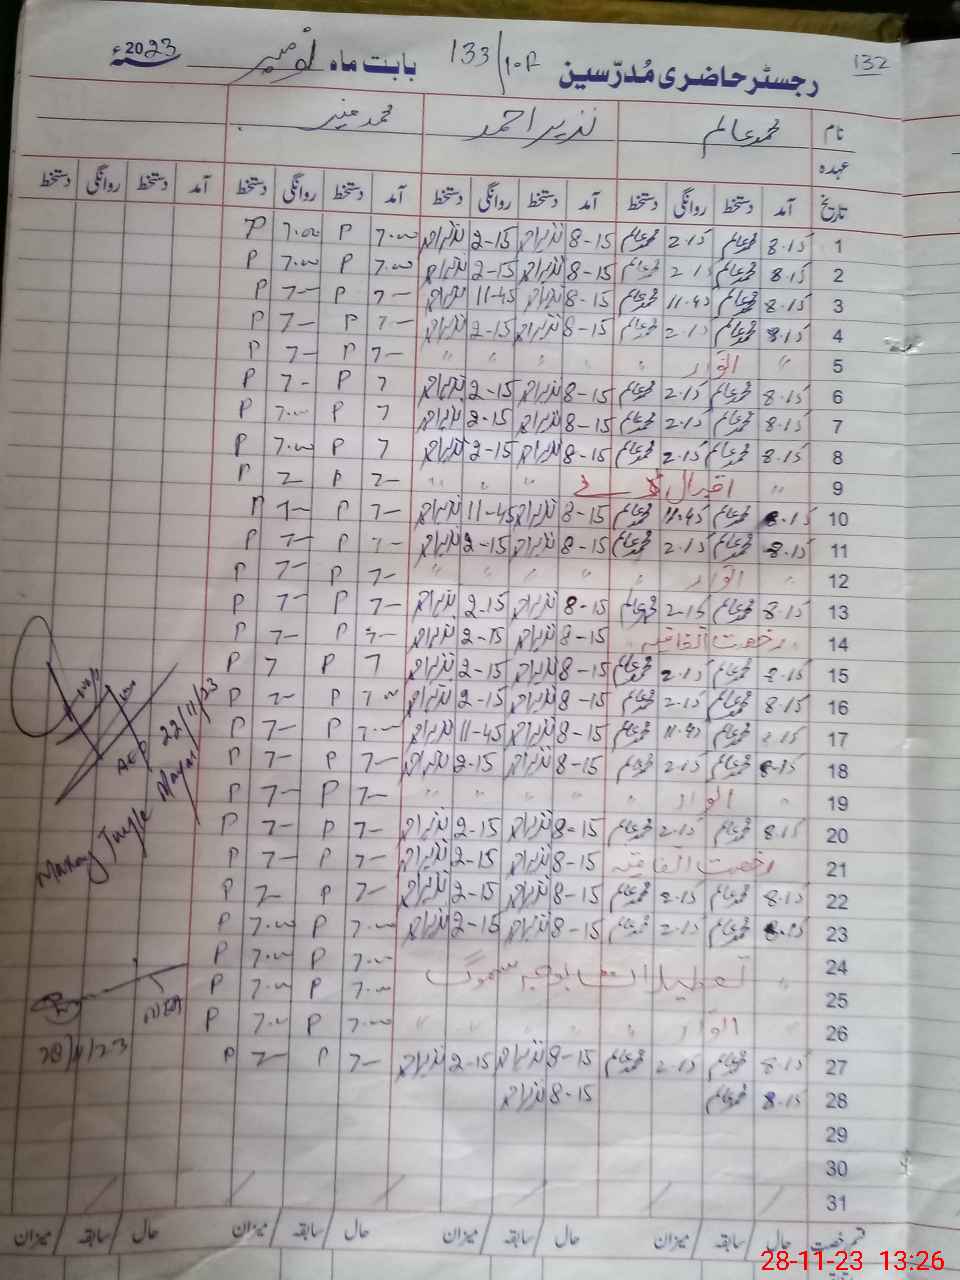 132
رجسٹر حاضری مُدرّسین 133/10-R بابت ماہ نومبر 2023ء
نام محمد عالم نذیر احمد محمد منیر
عہدہ
تاریخ آمد دستخط روانگی دستخط آمد دستخط روانگی دستخط آمد دستخط روانگی دستخط آمد دستخط روانگی دستخط
1 8.15 محمد عالم 2.15 محمد عالم 8-15 نذیر احمد 2-15 نذیر احمد 7.00 P 7.00 P
2 8.15 محمد عالم 2.15 محمد عالم 8-15 نذیر احمد 2-15 نذیر احمد 7.00 P 7.00 P
3 8.15 محمد عالم 11.45 محمد عالم 8-15 نذیر احمد 11-45 نذیر احمد 7- P 7- P
4 8.15 محمد عالم 2.15 محمد عالم 8-15 نذیر احمد 2-15 نذیر احمد 7- P 7- P
5 " اتوار " " " " " 7- P 7- P
6 8.15 محمد عالم 2.15 محمد عالم 8-15 نذیر احمد 2-15 نذیر احمد 7 P 7- P
7 8.15 محمد عالم 2.15 محمد عالم 8-15 نذیر احمد 2-15 نذیر احمد 7 P 7.00 P
8 8.15 محمد عالم 2.15 محمد عالم 8-15 نذیر احمد 2-15 نذیر احمد 7 P 7.00 P
9 " اقبال ڈے " " " 7- P 7 P
10 8.15 محمد عالم 11.45 محمد عالم 8-15 نذیر احمد 11-45 نذیر احمد 7- P 7- P
11 8.15 محمد عالم 2.15 محمد عالم 8-15 نذیر احمد 2-15 نذیر احمد 7- P 7- P
12 " اتوار " " " " " 7- P 7- P
13 8.15 محمد عالم 2.15 محمد عالم 8-15 نذیر احمد 2-15 نذیر احمد 7- P 7- P
14 رخصت اتفاقیہ 8-15 نذیر احمد 2-15 نذیر احمد 7- P 7- P
15 8.15 محمد عالم 2.15 محمد عالم 8-15 نذیر احمد 2-15 نذیر احمد 7 P 7 P
16 8.15 محمد عالم 2.15 محمد عالم 8-15 نذیر احمد 2-15 نذیر احمد 7.00 P 7- P
17 8.15 محمد عالم 11.45 محمد عالم 8-15 نذیر احمد 11-45 نذیر احمد 7.00 P 7- P
18 8.15 محمد عالم 2.15 محمد عالم 8-15 نذیر احمد 2-15 نذیر احمد 7- P 7- P
19 " اتوار " " " " " 7- P 7- P
20 8.15 محمد عالم 2.15 محمد عالم 8-15 نذیر احمد 2-15 نذیر احمد 7- P 7- P
21 رخصت اتفاقیہ 8-15 نذیر احمد 2-15 نذیر احمد 7- P 7- P
22 8.15 محمد عالم 2.15 محمد عالم 8-15 نذیر احمد 2-15 نذیر احمد 7- P 7- P
23 8.15 محمد عالم 2.15 محمد عالم 8-15 نذیر احمد 2-15 نذیر احمد 7.00 P 7.00 P
24 " تعطیلات بوجہ سموگ 7.00 P 7.00 P
25 7.00 P 7.00 P
26 " اتوار " " " " " 7.00 P 7.00 P
27 8.15 محمد عالم 2.15 محمد عالم 8-15 نذیر احمد 2-15 نذیر احمد 7- P 7- P
28 8.15 محمد عالم 8-15 نذیر احمد
29
30
31
قسم رخصت حال / سابقہ / میزان حال / سابقہ / میزان حال / سابقہ / میزان حال / سابقہ / میزان
22/11/23
28/11/23
28-11-23 13:26